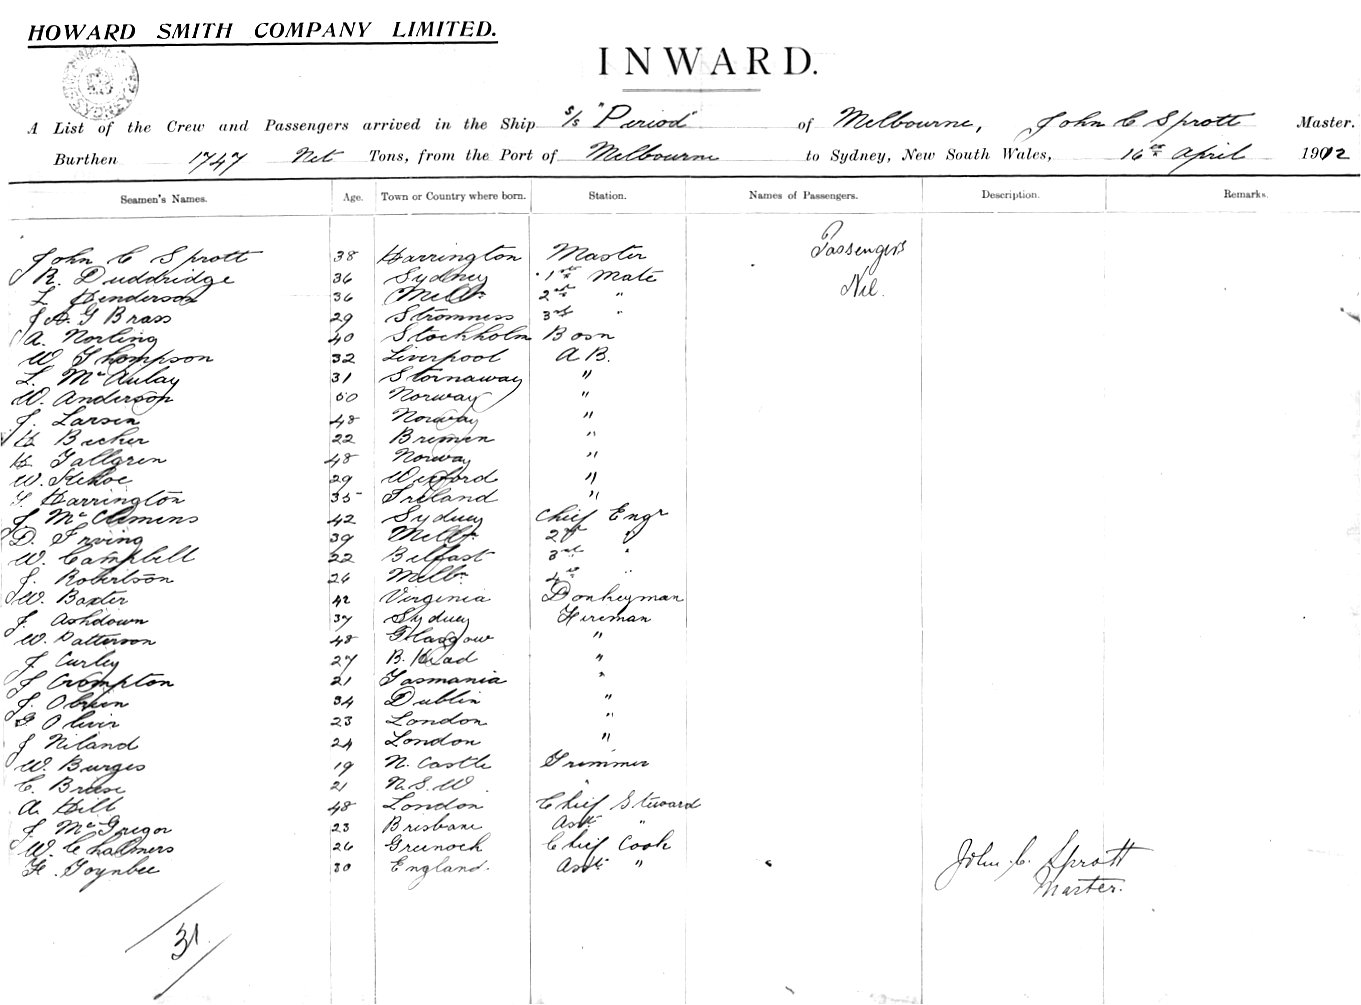 HOWARD SMITH COMPANY LIMITED.
INWARD.
A List of the Crew and Passengers arrived in the Ship S/S "Period" of Melbourne, John C Sprott Master.
Burthen 1747 Net Tons, from the Port of Melbourne to Sydney, New South Wales, 16th April 1902
Seamen's Names. Age. Town or Country where born. Station. Names of Passengers. Description. Remarks.
John C Sprott 38 Harrington Master Passengers
R. Duddridge 36 Sydney 1st Mate Nil.
L Henderson 36 Melb. 2nd "
J A. G Brass 29 Stromness 3rd "
A. Norling 40 Stockholm Bosn
W Thompson 32 Liverpool A B.
L. McAulay 31 Stornaway "
W. Anderson 50 Norway "
J. Larsen 48 Norway "
H Becker 22 Bremen "
H Tallgren 48 Norway "
W. Kehoe 29 Wexford "
T. Harrington 35 Ireland "
J McClemens 42 Sydney Chief Engr
D. Irving 39 Melb. 2nd "
W. Campbell 22 Belfast 3rd "
J. Robertson 26 Melb. 4th "
W. Baxter 42 Virginia Donkeyman
J. Ashdown 37 Sydney Fireman
W. Patterson 48 Glasgow "
J Curley 27 B. Head "
J Crompton 21 Tasmania "
J. Obrien 34 Dublin "
G Oliver 23 London "
J Niland 24 London "
W. Burges 19 N. Castle Trimmer
C. Breese 21 N. S. W. "
A. Hill 48 London Chief Steward
J. McGregor 23 Brisbane Asst "
W. Chalmers 26 Greenock Chief Cook
H. Toynbee 30 England. Asst "
John. C. Sprott
Master.
31